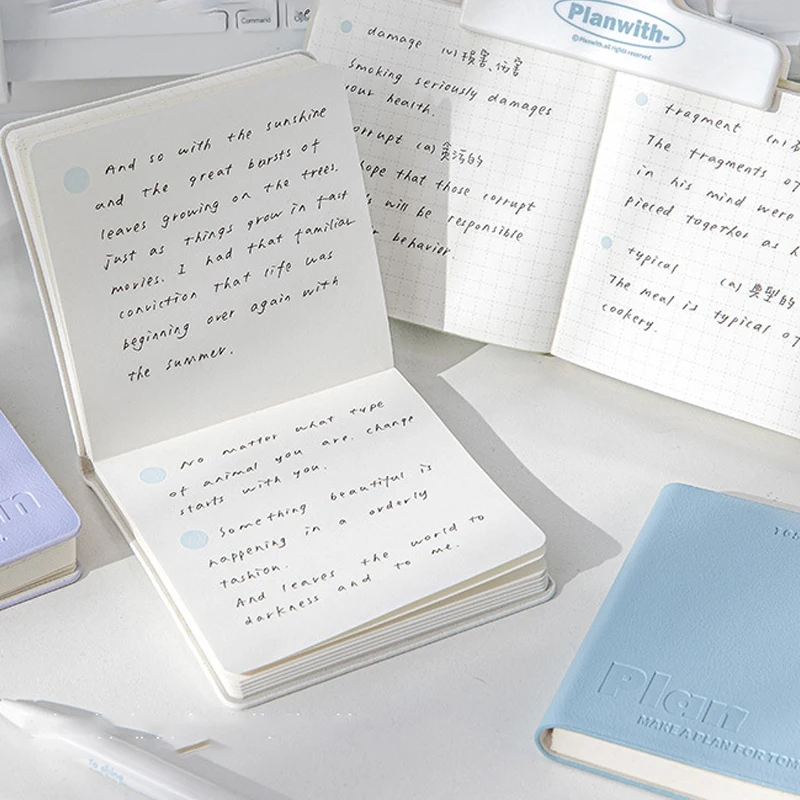 Command
Planwith-
©Planwith.all rights reserved.
And so with the sunshine
and the great bursts of
leaves growing on the trees.
just as things grow in fast
movies. I had that familiar
conviction that life was
beginning over again with
the summer.
No matter what type
of animal you are. change
starts with you.
Something beautiful is
happening in a orderly
fashion.
And leaves the world to
darkness and to me.
damage (v) 损害、伤害
Smoking seriously damages
your health.
corrupt (a) 贪污的
hope that those corrupt
will be responsible
behavior.
fragment (n)
The fragments of
in his mind were
pieced together as
typical (a) 典型的
The meal is typical of
cookery.
Plan
MAKE A PLAN FOR TOM